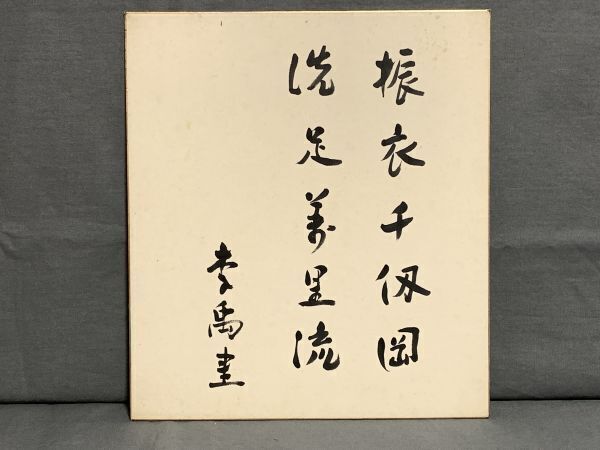 振衣千仭岡
洗足萬里流
李禹書